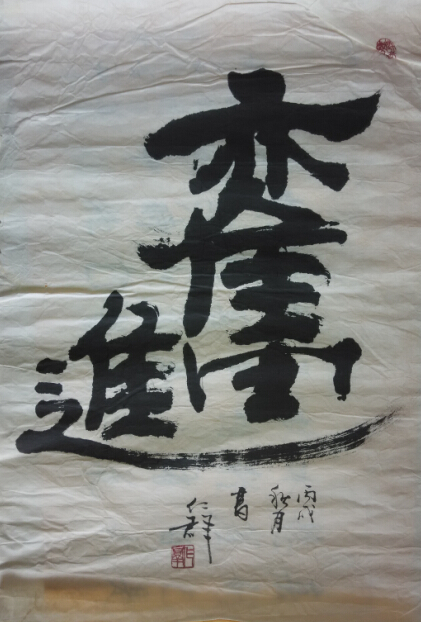 奮進
丙戌
秋月
書
仁群